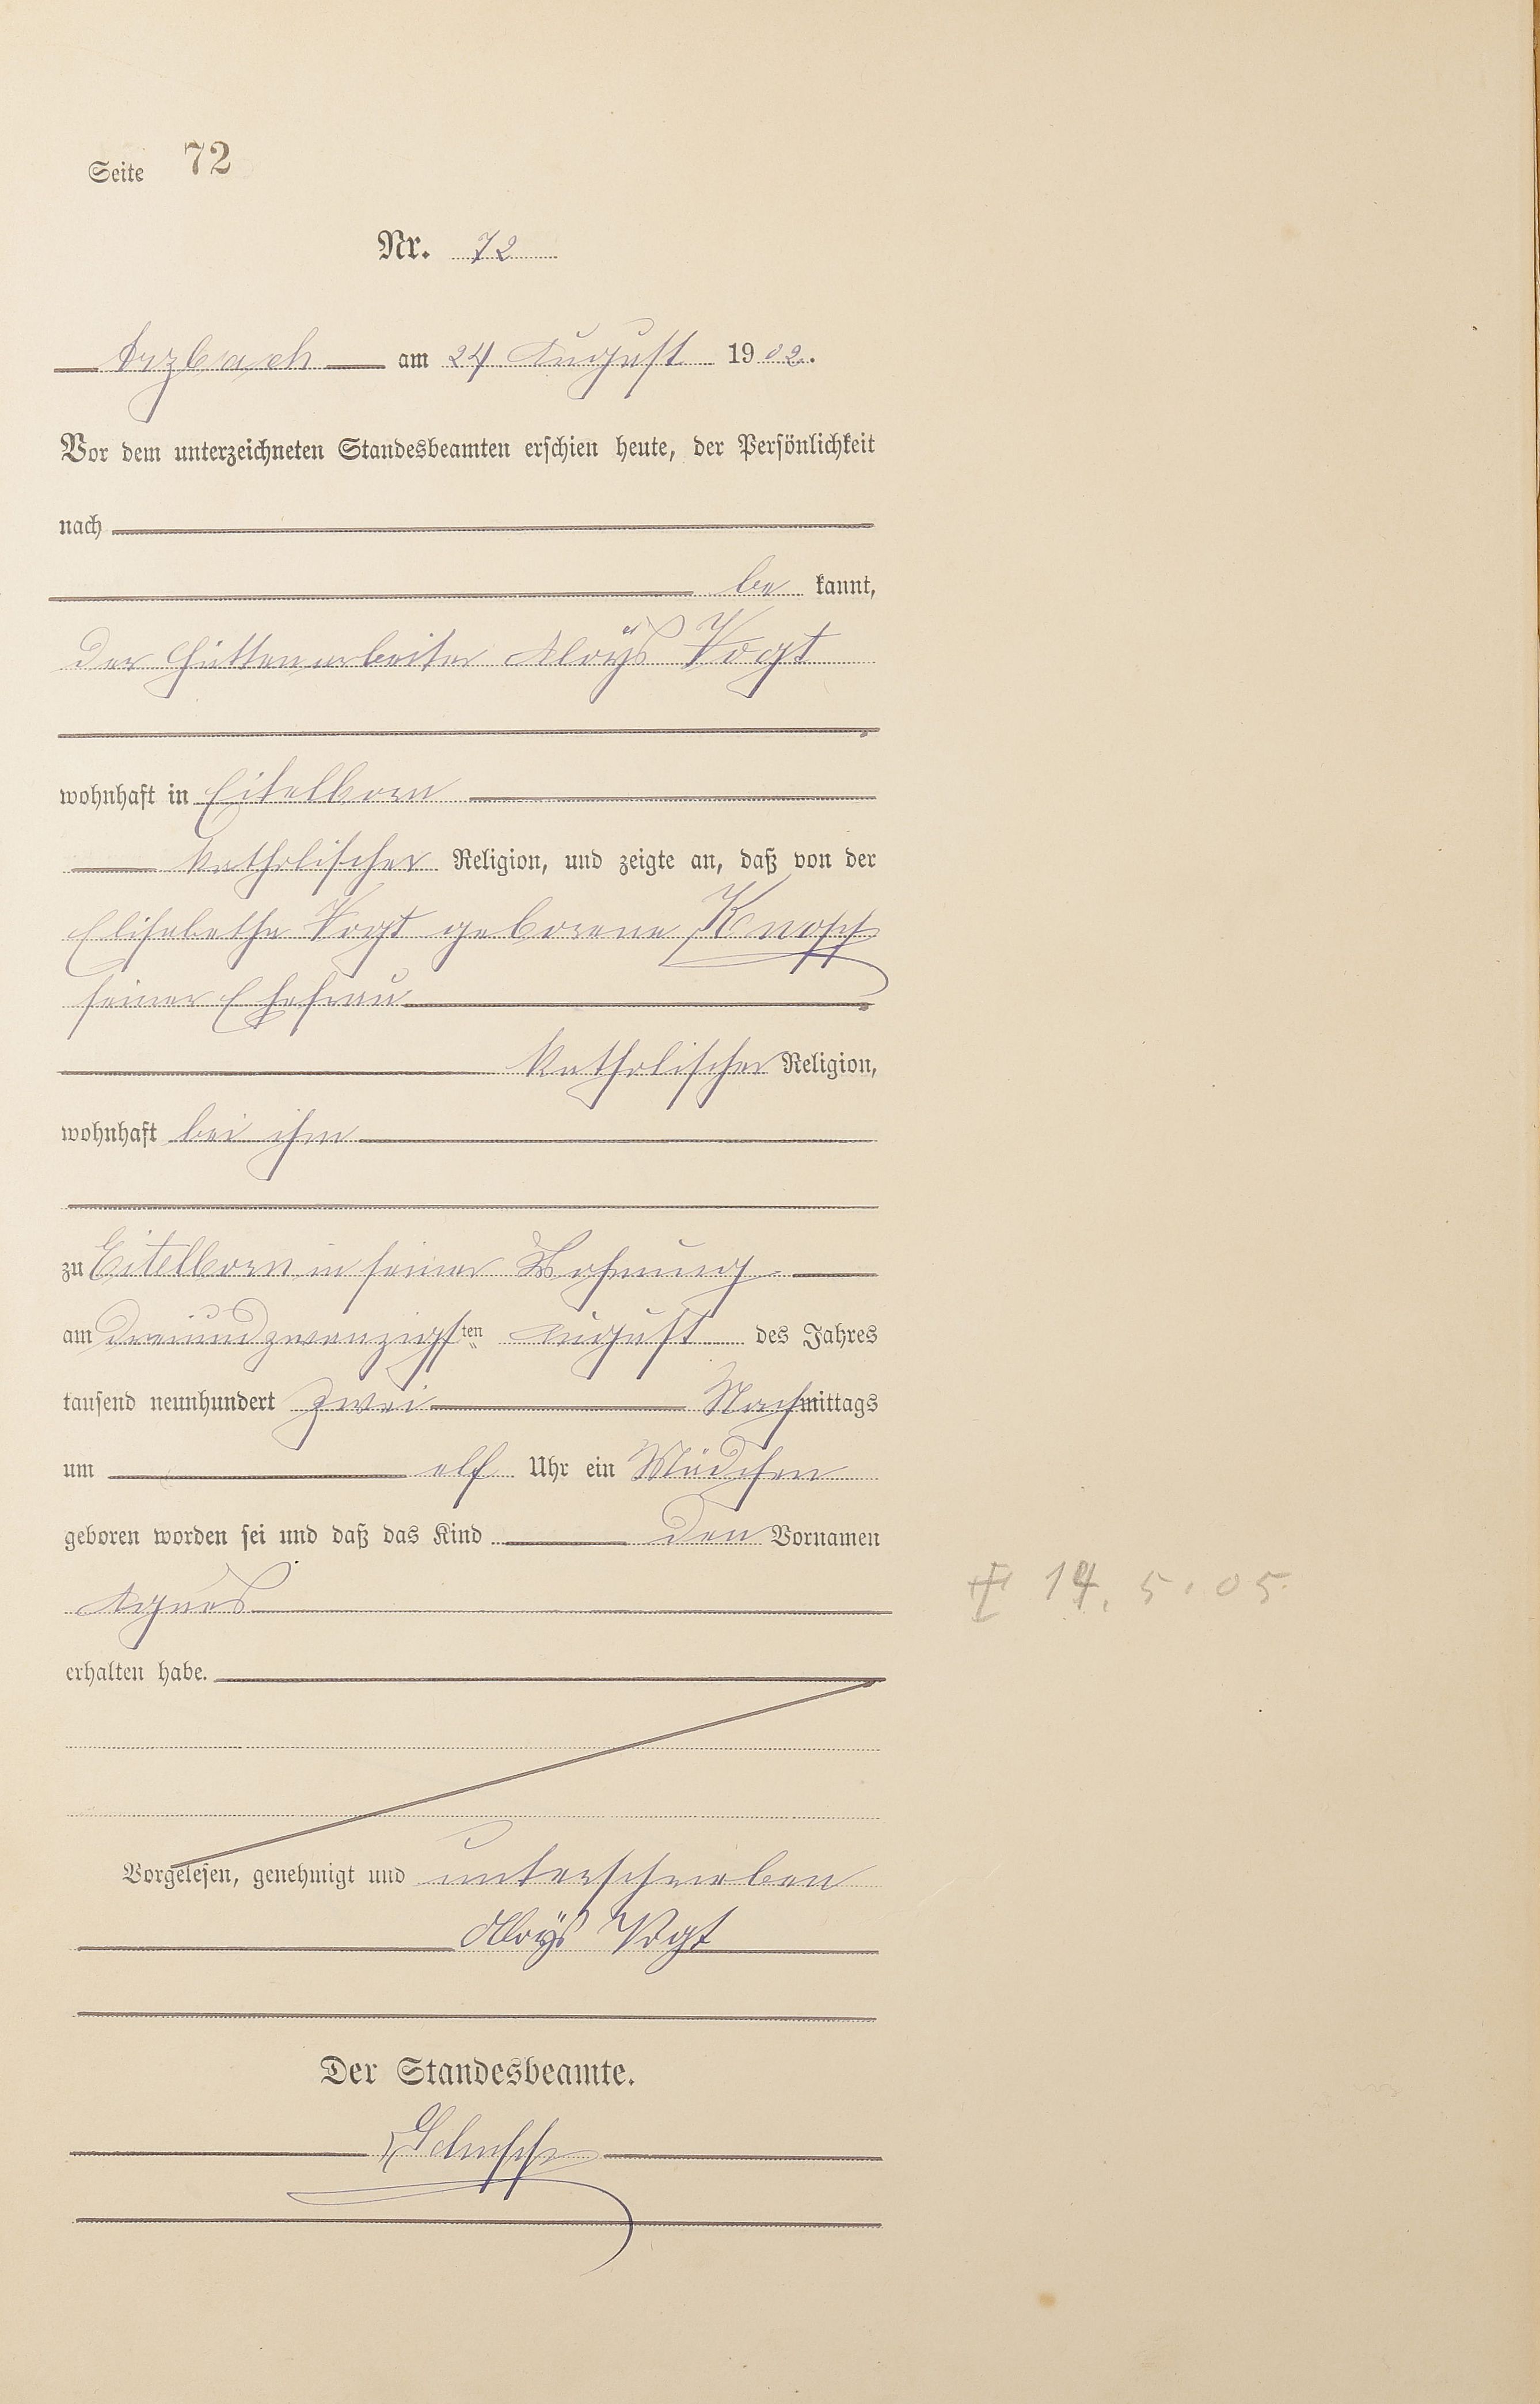 Seite 72
Nr. 72
Arzbach am 24 August 1902.
Vor dem unterzeichneten Standesbeamten erschien heute, der Persönlichkeit
nach
be kannt,
der Hüttenarbeiter Aloÿs Vogt
wohnhaft in Eitelborn
katholischer Religion, und zeigte an, daß von der
Elisabetha Vogt geborene Knopp
seiner Ehefrau
katholischer Religion,
wohnhaft bei ihm
zu Eitelborn in seiner Wohnung
am dreiundzwanzigsten August des Jahres
tausend neunhundert zwei Nachmittags
um elf Uhr ein Mädchen
geboren worden sei und daß das Kind den Vornamen
Agnes
† 14. 5. 05.
erhalten habe.
Vorgelesen, genehmigt und unterschrieben
Aloÿs Vogt
Der Standesbeamte.